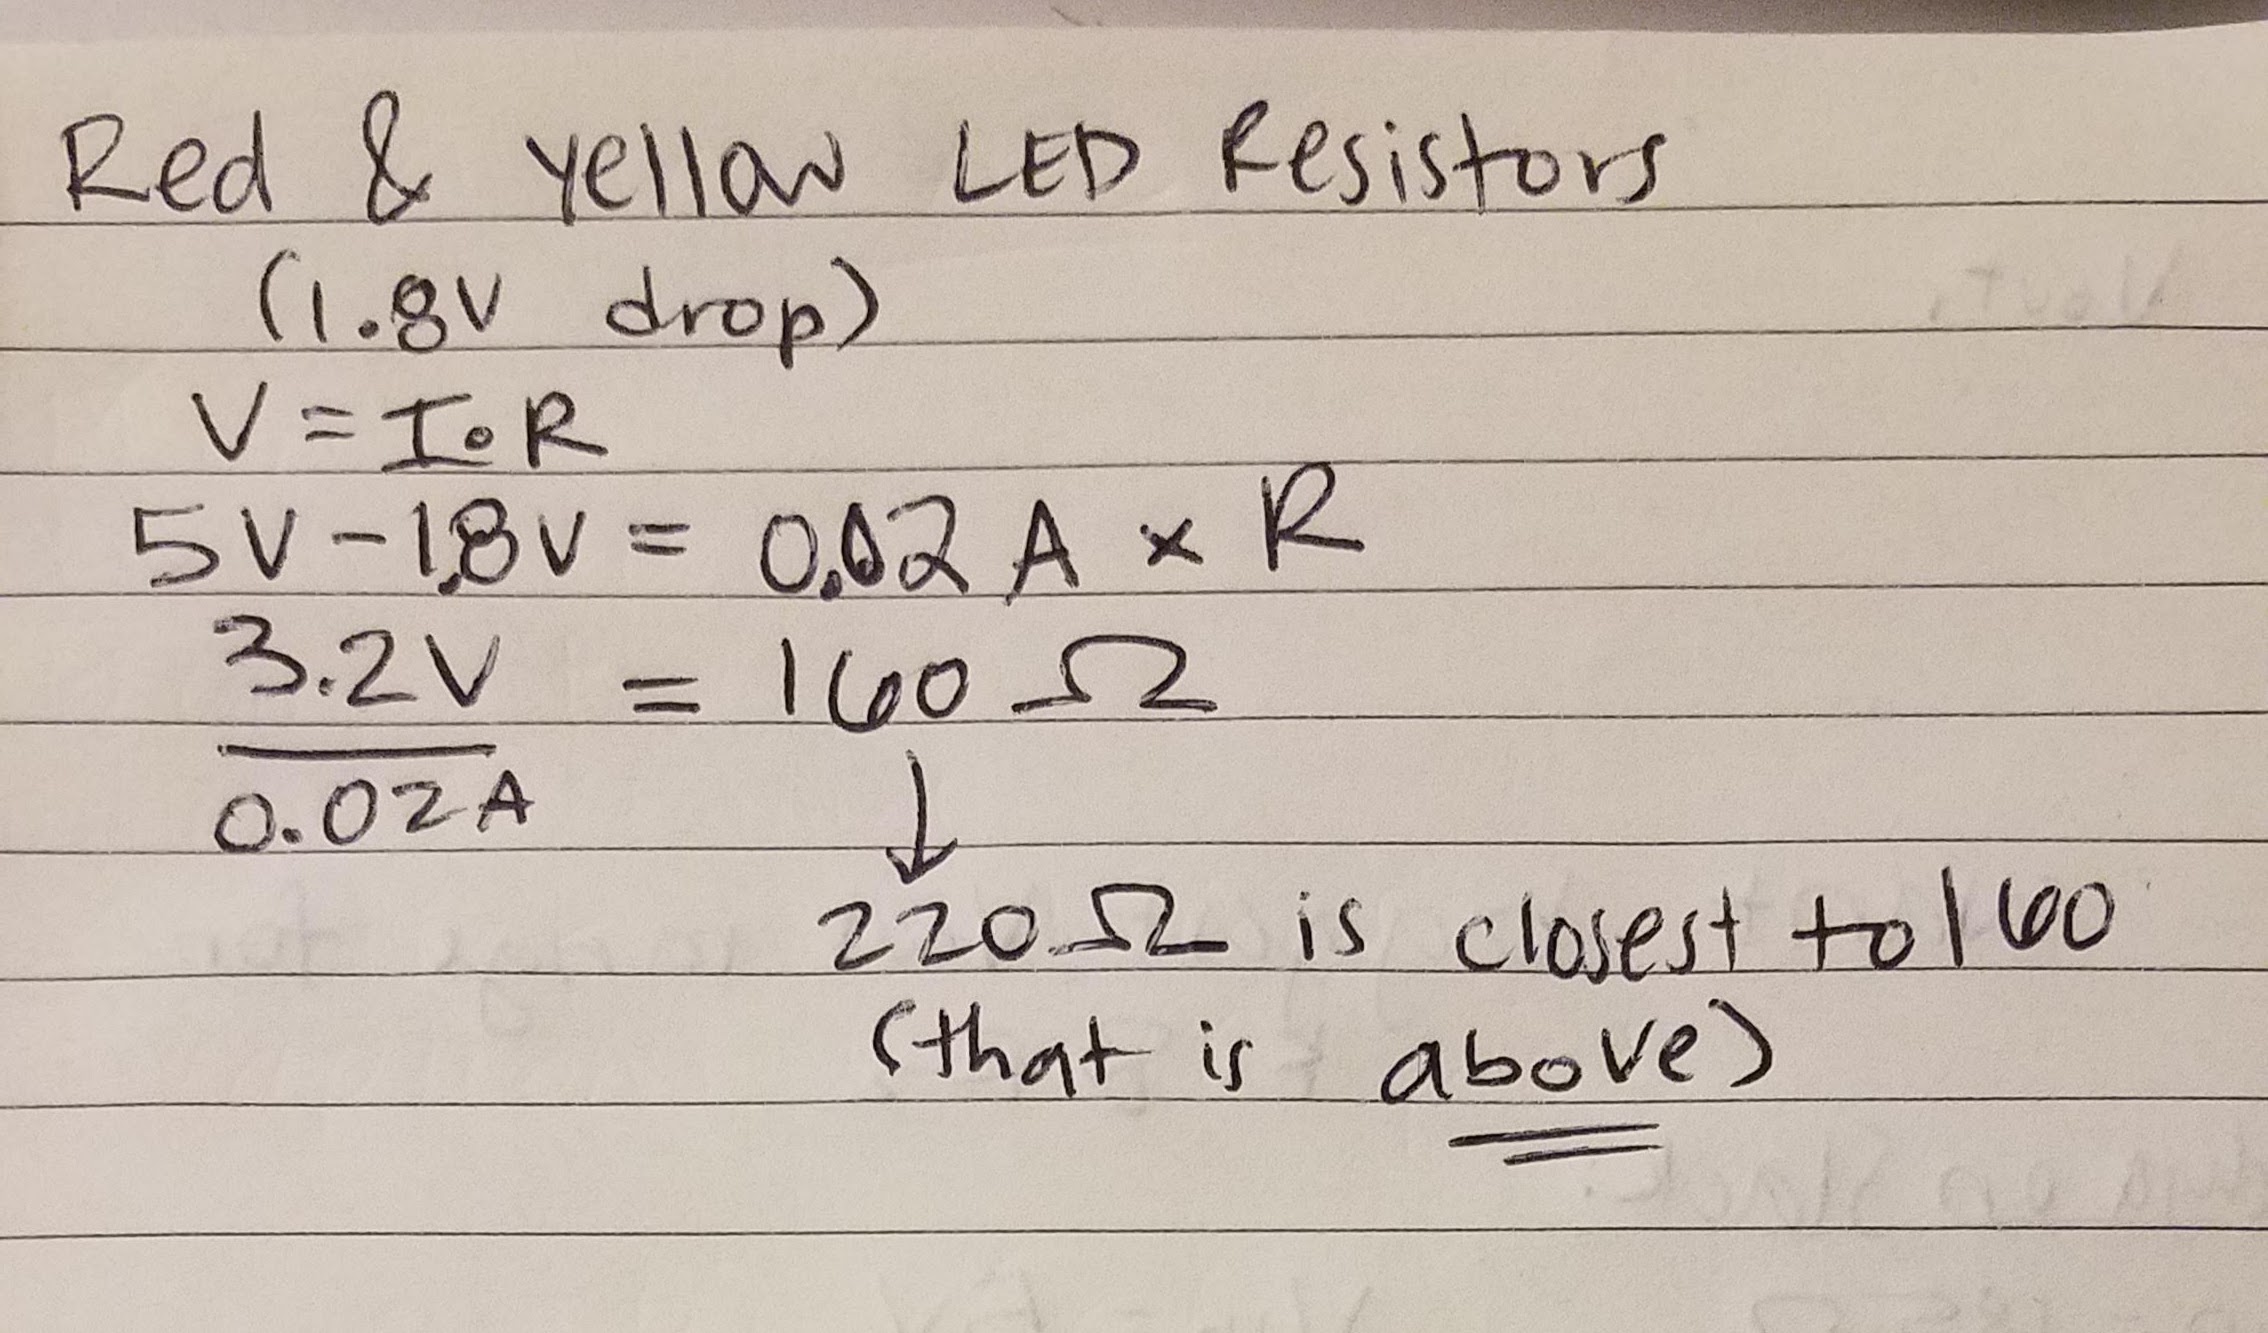 Red & yellow LED Resistors
(1.8V drop)
V = I • R
5V - 1.8V = 0.02 A × R
3.2V = 160 Ω
0.02A
↓
220 Ω is closest to 160
(that is above)